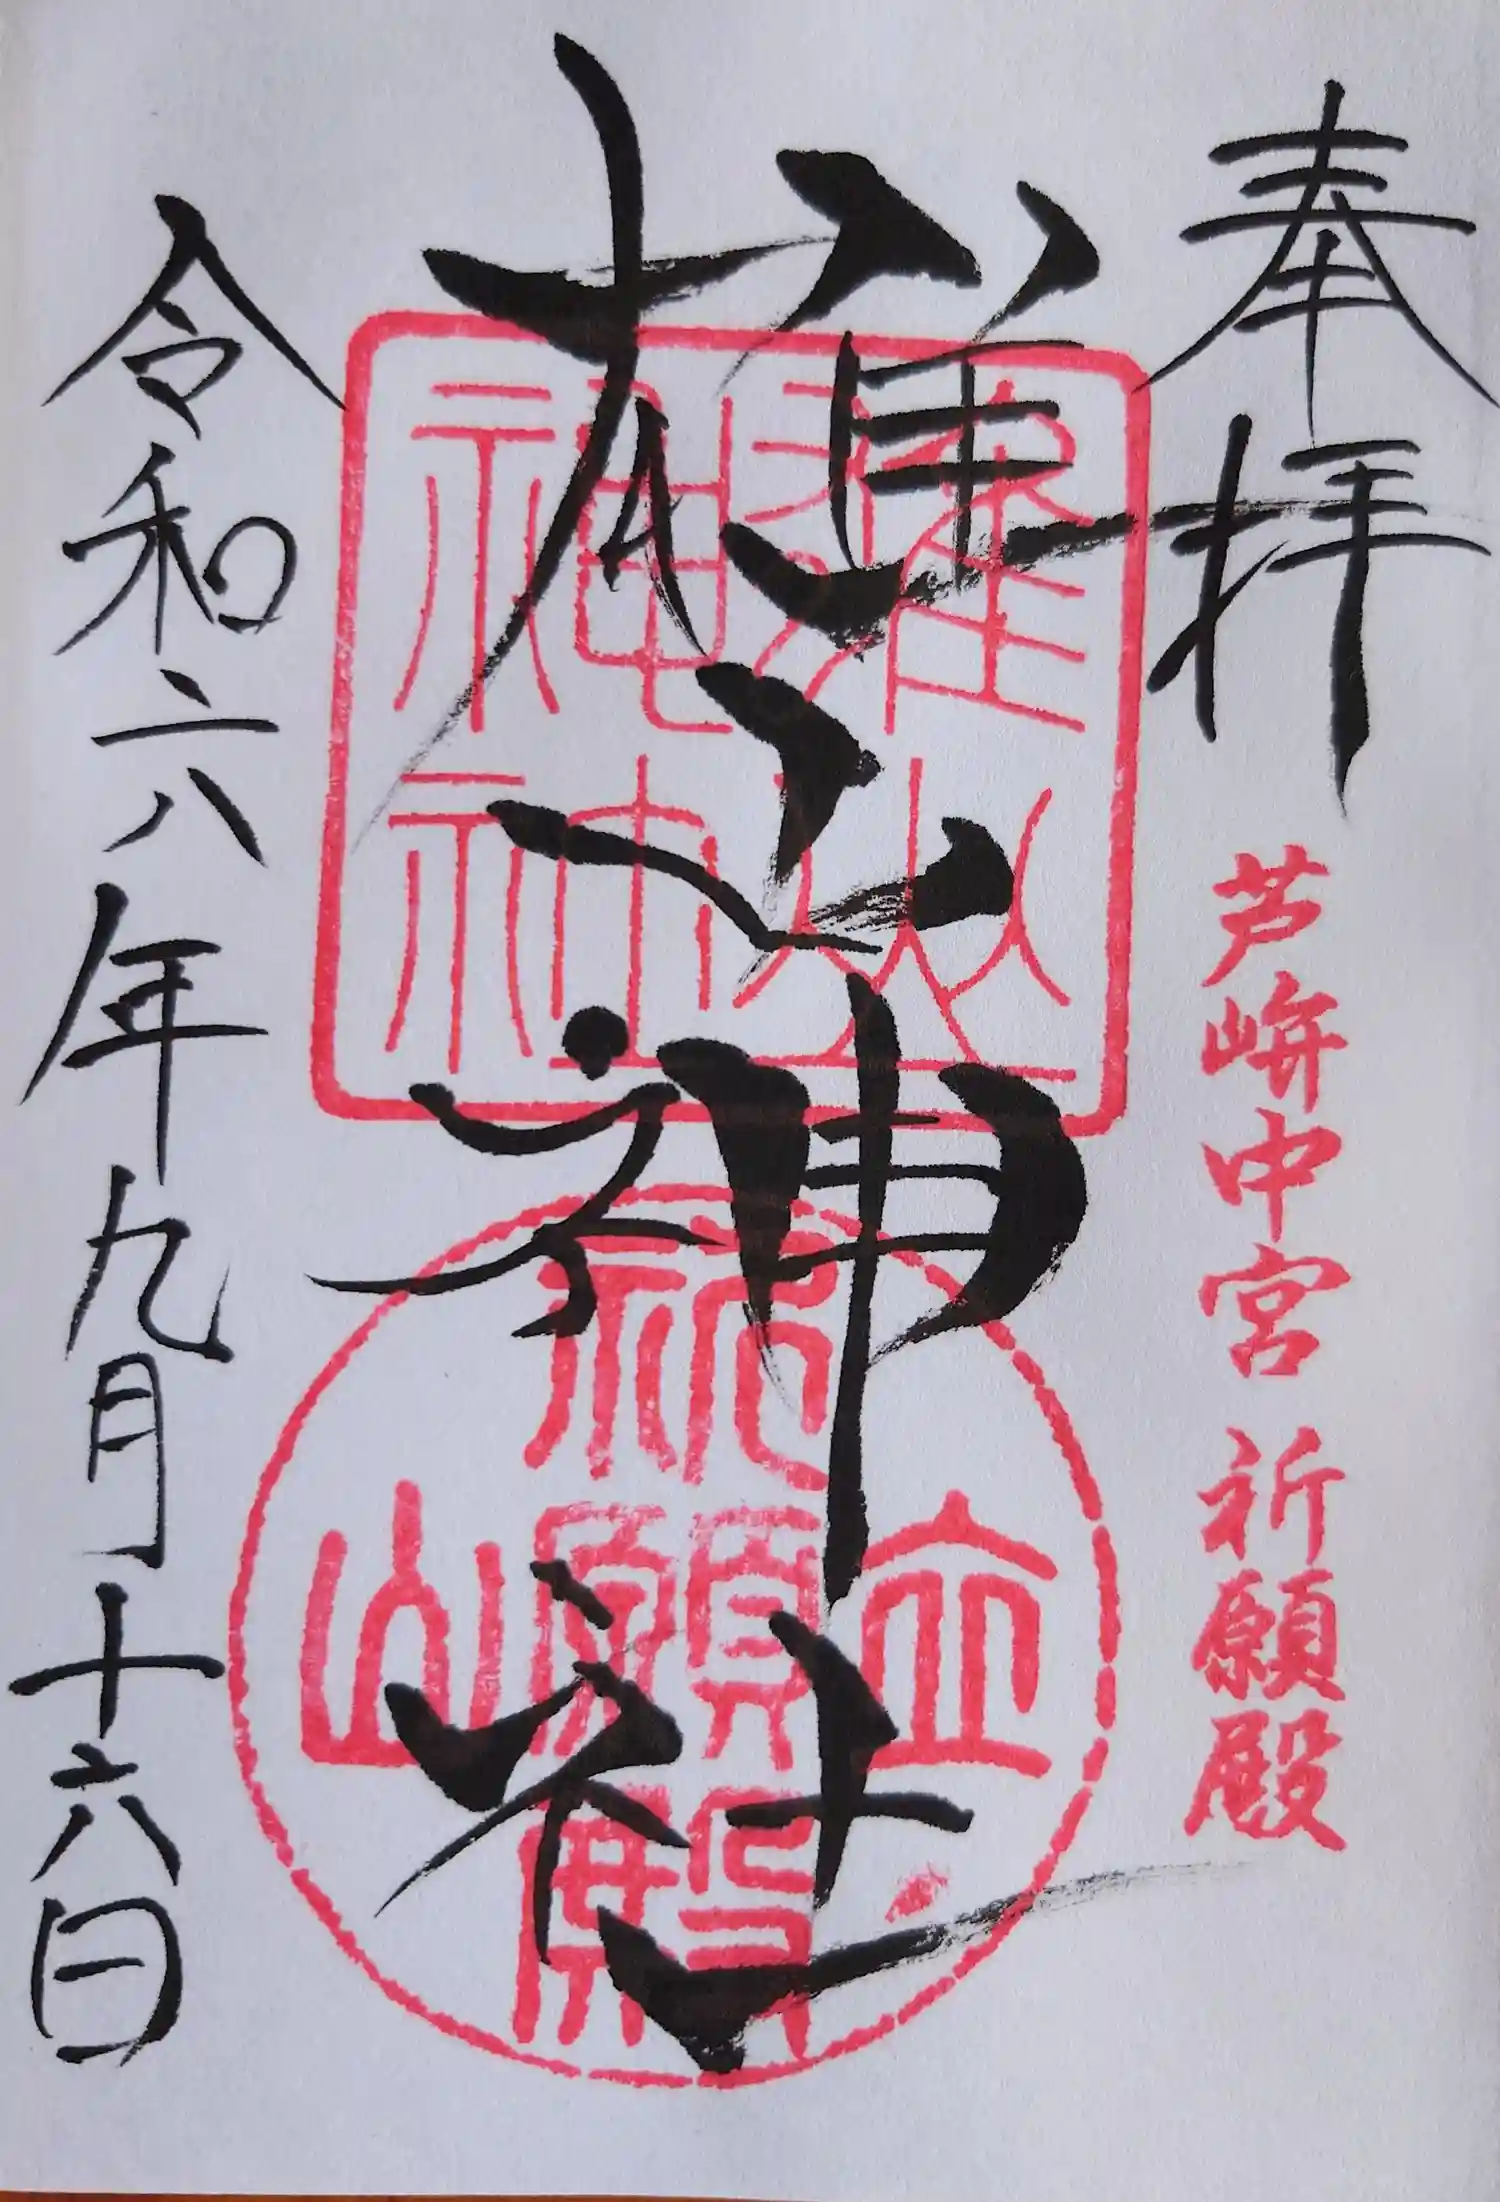 奉拝
芦峅中宮 祈願殿
雄山神社
令和六年九月十六日
雄山
神社
立山
祈願殿